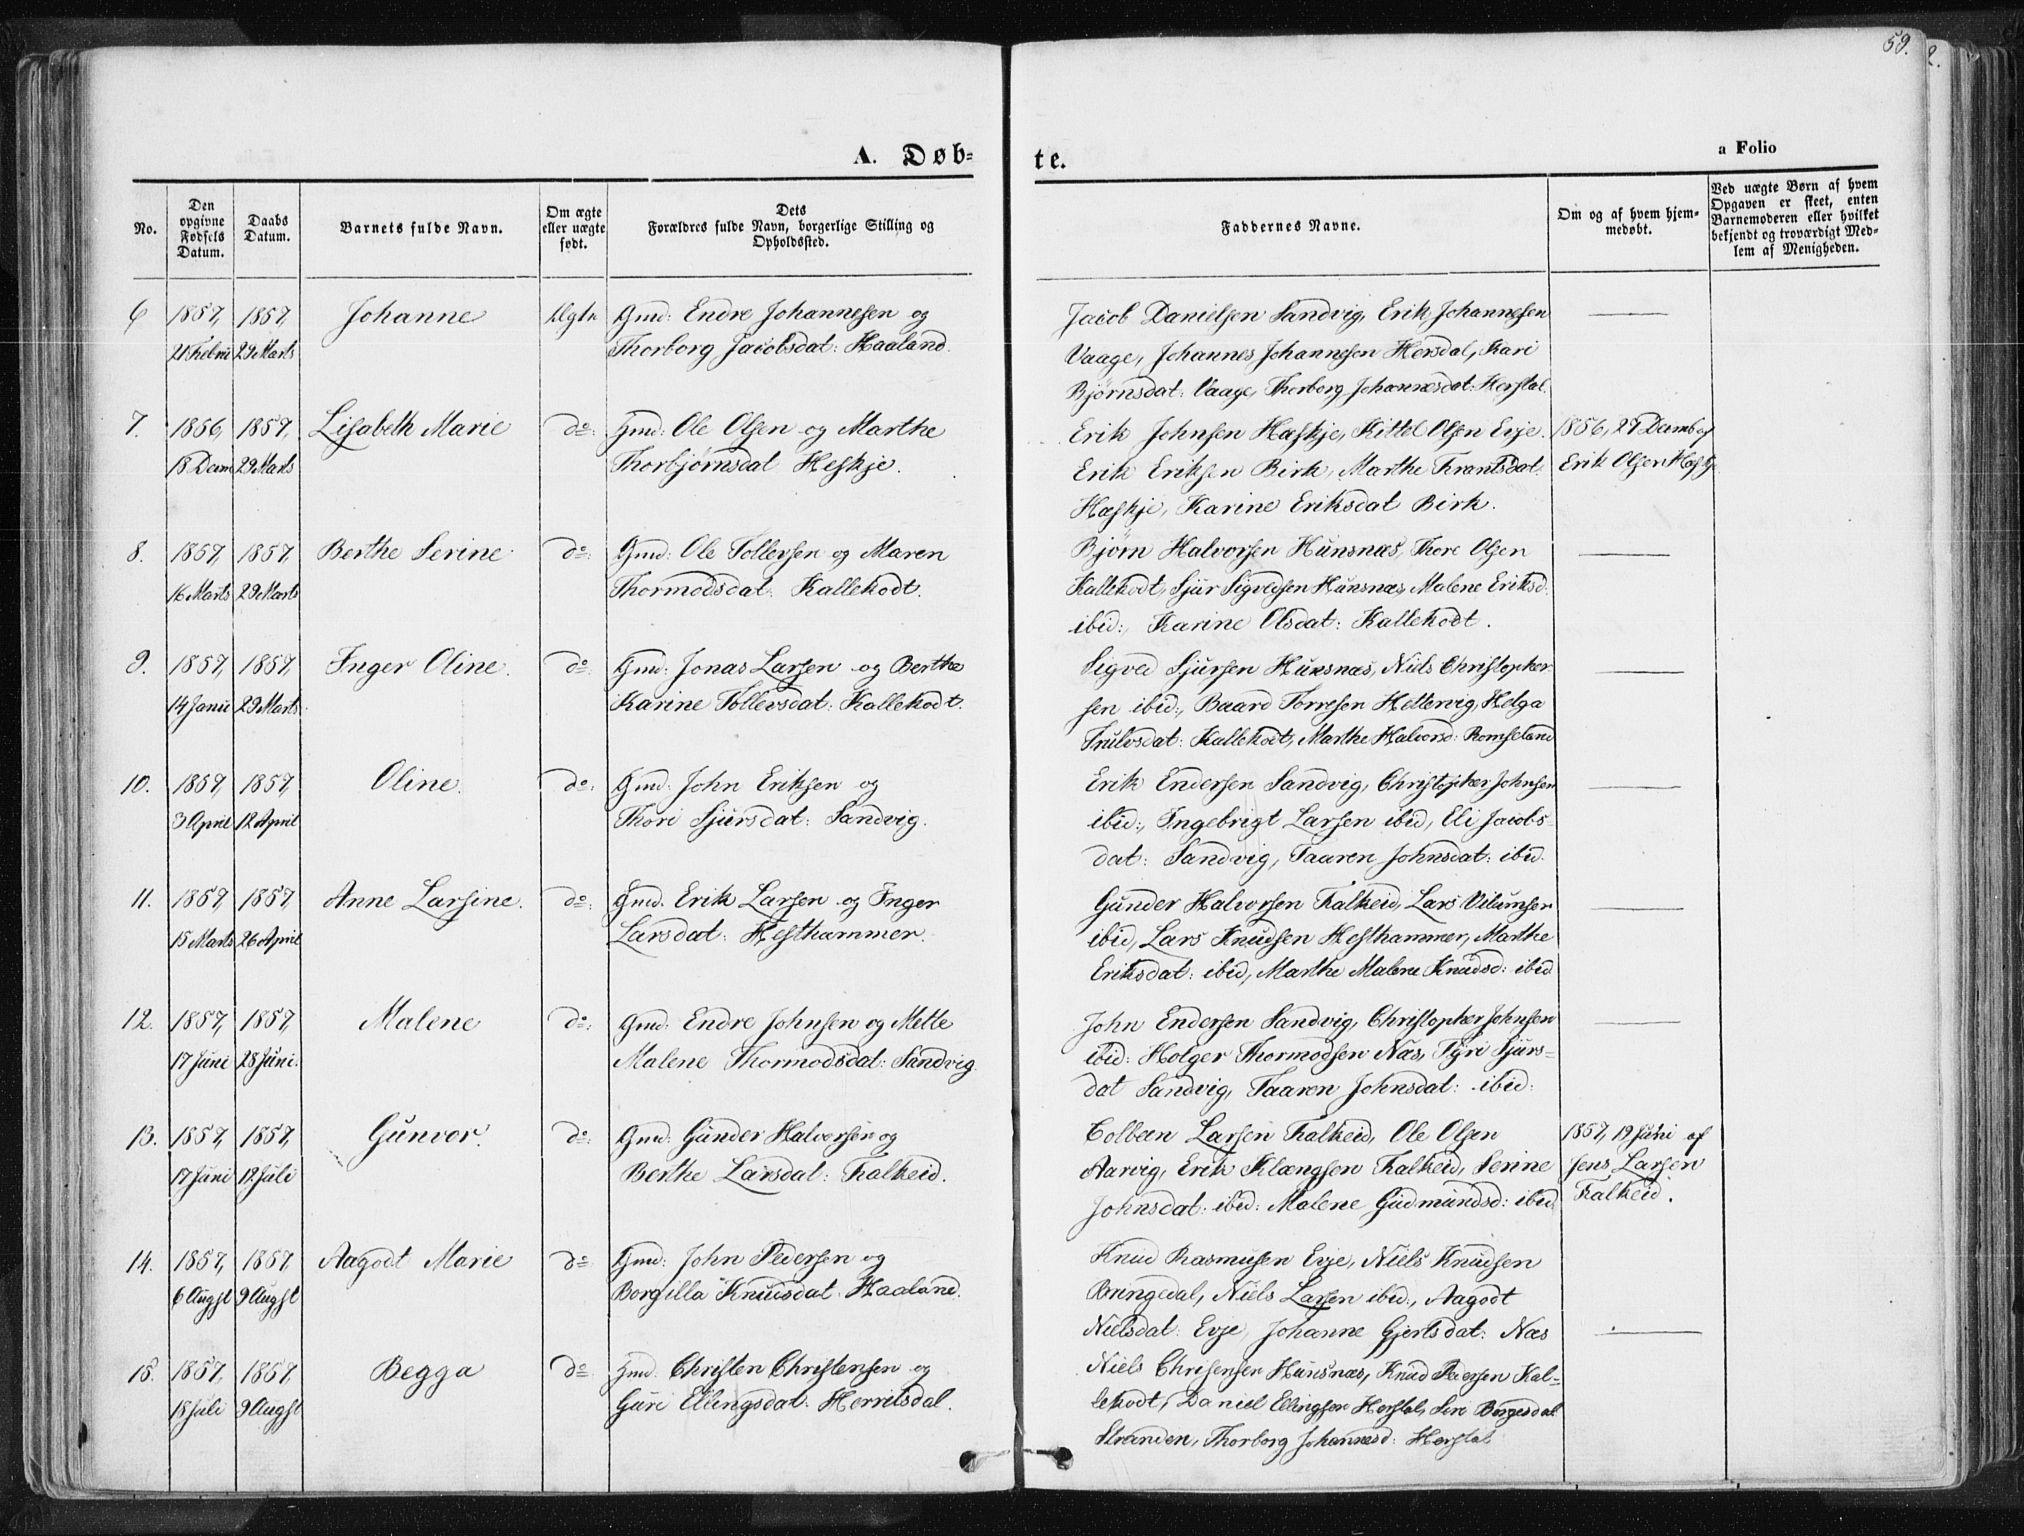 59.
2.
A. Døb-
te.
a Folio
No.
Den opgivne Fødsels Datum.
Daabs Datum.
Barnets fulde Navn.
Om ægte eller uægte født.
Dets Forældres fulde Navn, borgerlige Stilling og Opholdssted.
Faddernes Navne.
Om og af hvem hjemmedøbt.
Ved uægte Børn af hvem Opgaven er skeet, enten Barnemoderen eller hvilket bekjendt og troværdigt Medlem af Menigheden.
6 1857, 1857, Johanne Ægte Gmd: Endre Johannesen og Jacob Danielsen Sandvig, Erik Johannesen
21 Febrii 29 Marts Thorborg Jacobsdat: Haaland. Vaage, Johannes Johannesen Hersdal, Kari
Bjørnsdat: Vaage, Thorborg Johannesdat: Herstal.
7. 1856, 1857, Lisabeth Marie do: Gmd: Ole Olsen og Marthe Erik Johnsen Hæskje, Kittel Olsen Evje. 1856, 27 Decmb af
18 Decm 29 Marts Thorbjørnsdat Heskje. Erik Eriksen Birk, Marthe Frantsdat. Erik Olsen Hæskje
Hæskje, Karine Eriksdat Birk.
8. 1857, 1857, Berthe Serine do: Gmd: Ole Tollevsen og Maren Bjørn Halvorsen Hunsnæs, Thore Olsen
16 Marts 29 Marts Thormodsdat: Kallekodt. Kallekodt, Sjur Sigvedsen Hunsnæs, Malene Eriksd.
ibid:, Karine Olsdat: Kallekodt.
9. 1857, 1857, Inger Oline. do: Gmd: Jonas Larsen og Berthe Sigved Sjursen Hunsnæs, Niels Christopher-
14 Janu 29 Marts. Karine Tollevsdat: Kallekodt. sen ibid:, Baard Torresen Hettervig, Helga
Trulvsdat: Kallekodt, Marthe Halvorsd: Romseland
10. 1857, 1857, Oline. do: Gmd: John Eriksen og Erik Endersen Sandvig, Christopher Johnsen
3 April 12 April Thori Sjursdat: Sandvig. ibid:, Ingebrigt Larsen ibid, Eli Jacobs-
dat: Sandvig, Taaren Johnsdat: ibid.
11. 1857, 1857, Anne Larsine. do: Gmd. Erik Larsen og Inger Gunder Halvorsen Falkeid, Lars Vilumsen
15 Marts 26 April Larsdat: Hesthammer. ibid, Lars Knudsen Hesthammer, Marthe
Eriksdat: ibid, Marthe Malene Knudsd: ibid
12. 1857, 1857, Malene do: Gmd: Endre Johnsen og Mette John Endersen Sandvig, Christopher Johnsen
17 Juni 28 Juni. Malene Thormodsdat: Sandvig. ibid: Holger Thormodsen Næs, Tyri Sjurs-
dat Sandvig, Taaren Johnsdat: ibid:
13. 1857, 1857, Gunvor. do: Gmd: Gunder Halvorsen og Colbeen Larsen Falkeid, Ole Olsen 1857, 19 Juni af
17 Juni 12 Juli Berthe Larsdat: Falkeid. Aarvig, Erik Klængsen Falkeid, Serine Jens Larsen
Johnsdat: ibid: Malene Gudmundsd: ibid. Falkeid.
14. 1857, 1857, Aagodt Marie do: Gmd: John Pedersen og Knud Rasmusen Evje, Niels Knudsen
6 Augst 9 Augst Borgilla Knudsdat: Haaland. Bringedal, Niels Larsen ibid:, Aagodt
Nielsdat: Evje, Johanne Gjertsdat: Næs
15. 1857, 1857, Begga do: Gmd. Christen Christensen og Niels Chrisensen Hunsnæs, Knud Pedersen Kal-
18 Juli 9 Augst Guri Ellingsdat: Herrilsdal. lekodt, Daniel Ellingsen Herstal, Siri Børgesdat
Stranden, Thorborg Johannesd: Herstal